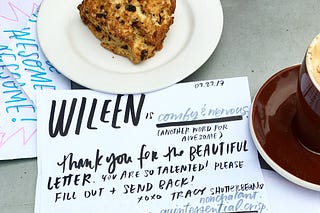 09.23.17
WILEEN IS comfy & nervous
(ANOTHER WORD FOR AWESOME)
Thank you for the BEAUTIFUL
LETTER. YOU ARE SO TALENTED! PLEASE
FILL OUT + SEND BACK!
XOXO TRACY SHUTTERBEAN
nonchalant.
quintessential crisp.
WELCOME
AWESOME!